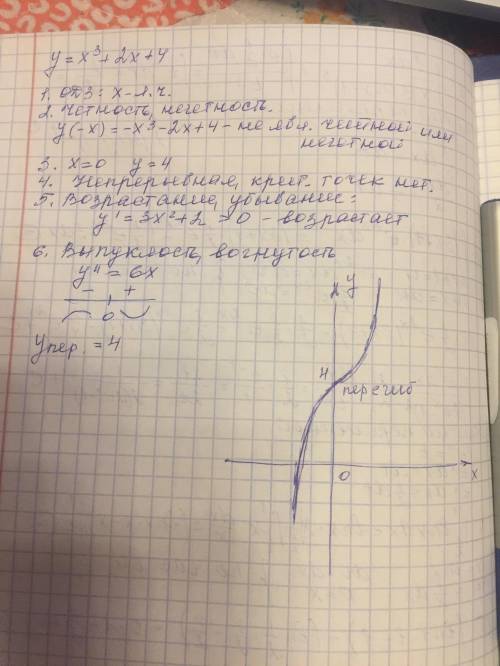 y = x³ + 2x + 4
1. ОДЗ: x - л.ч.
2. Четность, нечетность.
y(-x) = -x³ - 2x + 4 - не явл. четной или
нечетной
3. x = 0 y = 4
4. Непрерывная, крит. точек нет.
5. Возрастание, убывание:
y' = 3x² + 2 > 0 - возрастает
6. Выпуклость, вогнутость
y'' = 6x
- +
0
y пер. = 4
y
4
перегиб
0
x